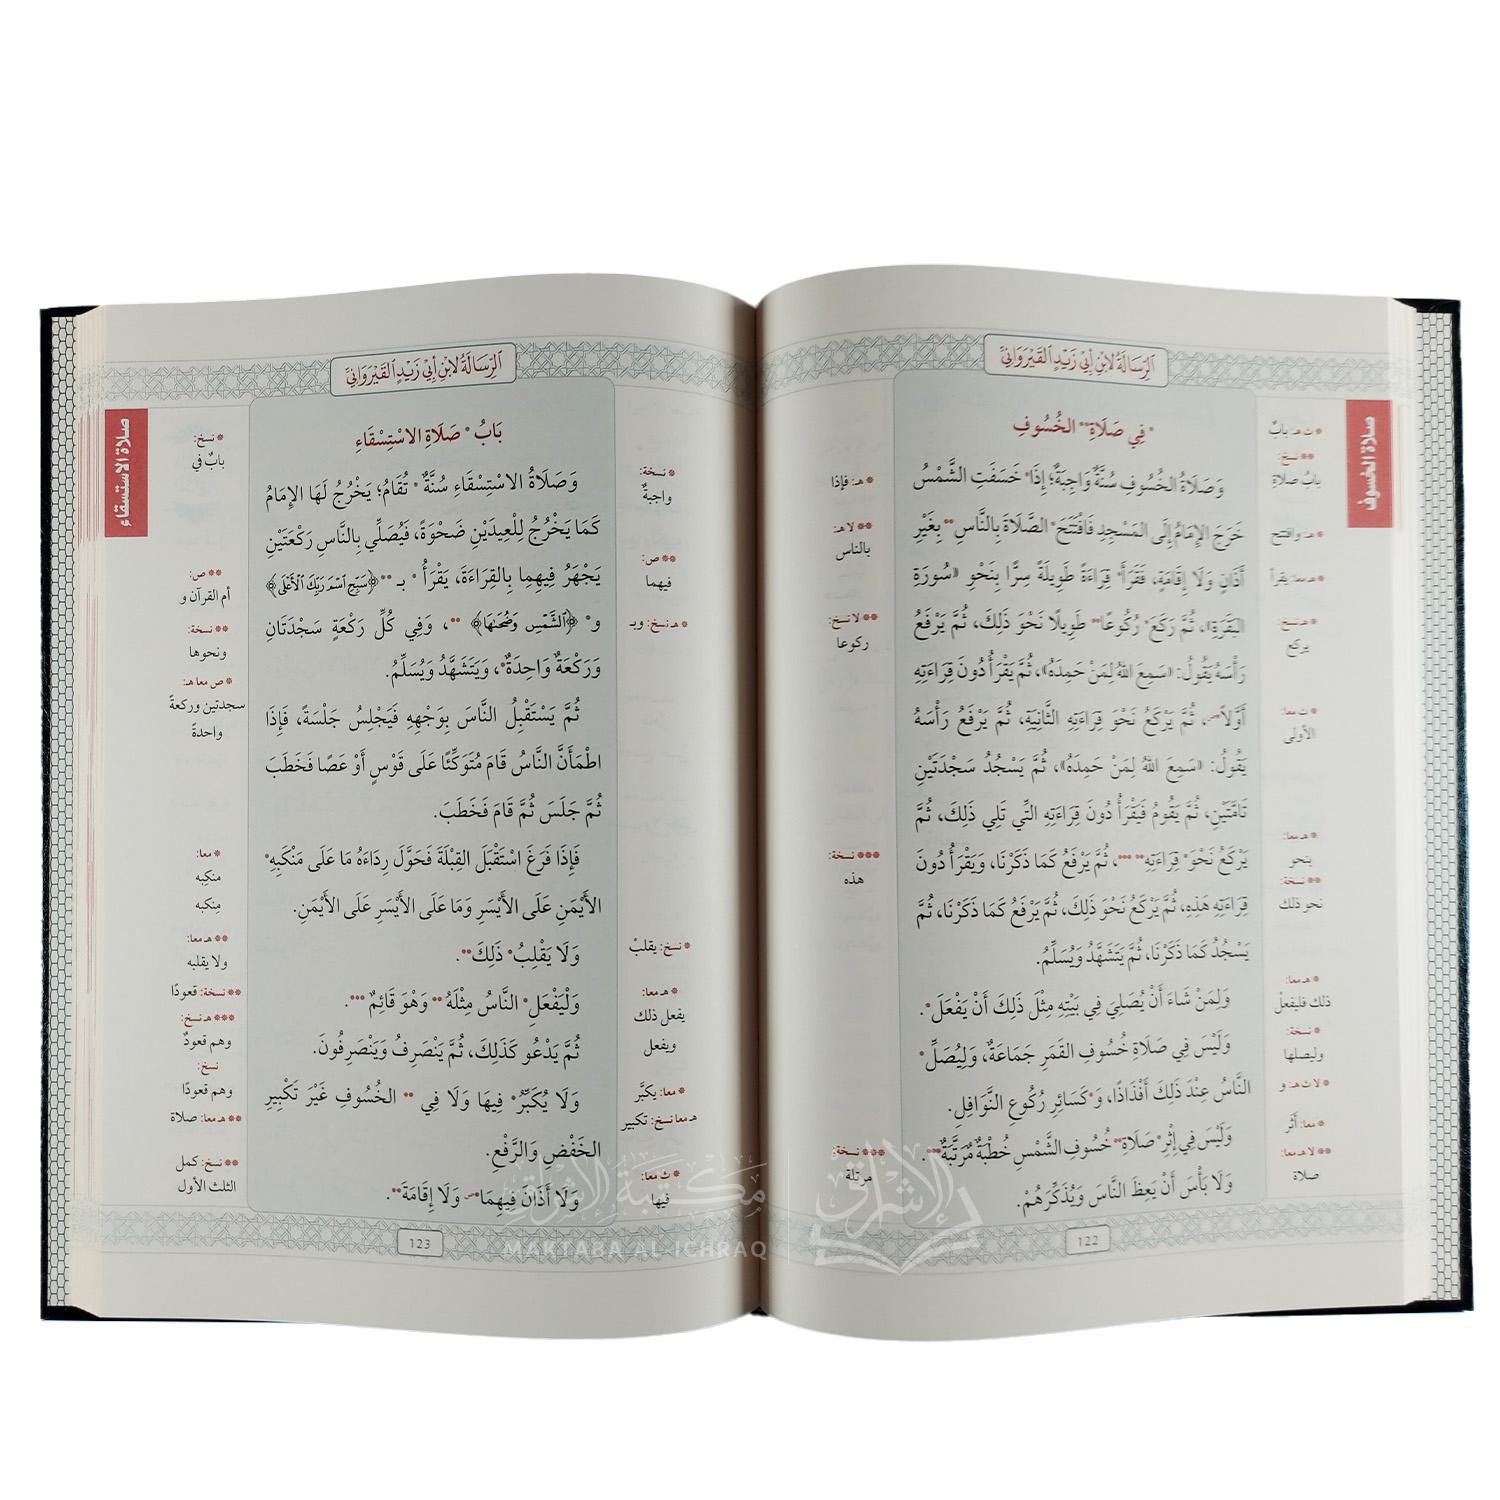 الرِّسَالَةُ لِابْنِ أَبِي زَيْدٍ القَيْرَوَانِيِّ
صلاة الخسوف
* فِي صَلَاةِ ** الخُسُوفِ
وَصَلَاةُ الخُسُوفِ سُنَّةٌ وَاجِبَةٌ؛ إِذَا * خَسَفَتِ الشَّمْسُ
خَرَجَ الإِمَامُ إِلَى المَسْجِدِ فَافْتَتَحَ * الصَّلَاةَ بِالنَّاسِ ** بِغَيْرِ
أَذَانٍ وَلَا إِقَامَةٍ، فَقَرَأَ * قِرَاءَةً طَوِيلَةً سِرًّا بِنَحْوِ «سُورَةِ
البَقَرَةِ»، ثُمَّ رَكَعَ * رُكُوعًا ** طَوِيلًا نَحْوَ ذَلِكَ، ثُمَّ يَرْفَعُ
رَأْسَهُ يَقُولُ: «سَمِعَ اللهُ لِمَنْ حَمِدَهُ»، ثُمَّ يَقْرَأُ دُونَ قِرَاءَتِهِ
أَوَّلًا، ثُمَّ يَرْكَعُ نَحْوَ قِرَاءَتِهِ الثَّانِيَةِ، ثُمَّ يَرْفَعُ رَأْسَهُ
يَقُولُ: «سَمِعَ اللهُ لِمَنْ حَمِدَهُ»، ثُمَّ يَسْجُدُ سَجْدَتَيْنِ
تَامَّتَيْنِ، ثُمَّ يَقُومُ فَيَقْرَأُ دُونَ قِرَاءَتِهِ الَّتِي تَلِي ذَلِكَ، ثُمَّ
يَرْكَعُ نَحْوَ * قِرَاءَتِهِ ** ***، ثُمَّ يَرْفَعُ كَمَا ذَكَرْنَا، وَيَقْرَأُ دُونَ
قِرَاءَتِهِ هَذِهِ، ثُمَّ يَرْكَعُ نَحْوَ ذَلِكَ، ثُمَّ يَرْفَعُ كَمَا ذَكَرْنَا، ثُمَّ
يَسْجُدُ كَمَا ذَكَرْنَا، ثُمَّ يَتَشَهَّدُ وَيُسَلِّمُ.
وَلِمَنْ شَاءَ أَنْ يُصَلِّيَ فِي بَيْتِهِ مِثْلَ ذَلِكَ أَنْ يَفْعَلَ *.
وَلَيْسَ فِي صَلَاةِ خُسُوفِ القَمَرِ جَمَاعَةٌ، وَلِيُصَلِّ *
النَّاسُ عِنْدَ ذَلِكَ أَفْذَاذًا، وَ * كَسَائِرِ رُكُوعِ النَّوَافِلِ.
وَلَيْسَ فِي إِثْرِ * صَلَاةِ ** خُسُوفِ الشَّمْسِ خُطْبَةٌ مُرَتَّبَةٌ ***.
وَلَا بَأْسَ أَنْ يَعِظَ النَّاسَ وَيُذَكِّرَهُمْ.
* ت هـ: بابٌ
** نسخ:
بابُ صلاةِ
* هـ: وافتتح
* هـ معا: يقرأ
* هـ نسخ:
يركع
* ت معا:
الأولى
* هـ معا:
بنحو
** نسخة:
نحو ذلك
* هـ معا:
ذلك فليفعلْ
* نسخة:
وليصلها
* لا ت هـ: و
* معا: أثَر
** لا هـ معا:
صلاة
* هـ: فإذا
** لا هـ:
بالناس
** لا نسخ:
ركوعا
*** نسخة:
هذه
*** نسخة:
مرتلة
122
الرِّسَالَةُ لِابْنِ أَبِي زَيْدٍ القَيْرَوَانِيِّ
صلاة الاستسقاء
بَابُ * صَلَاةِ الاسْتِسْقَاءِ
وَصَلَاةُ الاسْتِسْقَاءِ سُنَّةٌ * تُقَامُ؛ يَخْرُجُ لَهَا الإِمَامُ
كَمَا يَخْرُجُ لِلْعِيدَيْنِ ضَحْوَةً، فَيُصَلِّي بِالنَّاسِ رَكْعَتَيْنِ
يَجْهَرُ فِيهِمَا بِالقِرَاءَةِ، يَقْرَأُ * بـ ** ﴿سَبِّحِ اسْمَ رَبِّكَ الْأَعْلَى﴾
و * ﴿الشَّمْسِ وَضُحَاهَا﴾ **، وَفِي كُلِّ رَكْعَةٍ سَجْدَتَانِ
وَرَكْعَةٌ وَاحِدَةٌ *، وَيَتَشَهَّدُ وَيُسَلِّمُ.
ثُمَّ يَسْتَقْبِلُ النَّاسَ بِوَجْهِهِ فَيَجْلِسُ جَلْسَةً، فَإِذَا
اطْمَأَنَّ النَّاسُ قَامَ مُتَوَكِّئًا عَلَى قَوْسٍ أَوْ عَصًا فَخَطَبَ
ثُمَّ جَلَسَ ثُمَّ قَامَ فَخَطَبَ.
فَإِذَا فَرَغَ اسْتَقْبَلَ القِبْلَةَ فَحَوَّلَ رِدَاءَهُ مَا عَلَى مَنْكَبِهِ *
الأَيْمَنِ عَلَى الأَيْسَرِ وَمَا عَلَى الأَيْسَرِ عَلَى الأَيْمَنِ.
وَلَا يَقْلِبُ * ذَلِكَ **.
وَلْيَفْعَلِ * النَّاسُ مِثْلَهُ ** وَهْوَ قَائِمٌ ***.
ثُمَّ يَدْعُو كَذَلِكَ، ثُمَّ يَنْصَرِفُ وَيَنْصَرِفُونَ.
وَلَا يُكَبِّرُ * فِيهَا وَلَا فِي ** الخُسُوفِ غَيْرَ تَكْبِيرِ
الخَفْضِ وَالرَّفْعِ.
وَلَا أَذَانَ فِيهِمَا * وَلَا إِقَامَةَ **.
* نسخة:
واجبةٌ
** ص:
فيهما
* هـ نسخ: وبـ
* نسخ: يقلبْ
* هـ معا:
يفعل ذلك
ويفعل
* معا: يكبَّر
هـ معا نسخ: تكبير
* ث معا:
فيها
* نسخ:
بابٌ في
** ص:
أم القرآن و
** نسخة:
ونحوها
* ص معا هـ:
سجدتين وركعةً
واحدةً
* معا:
منكِبه
مِنكبه
** هـ معا:
ولا يقلبه
** نسخة: قعودًا
*** هـ نسخ:
وهم قعودٌ
نسخ:
وهم قعودًا
** هـ معا: صلاة
** نسخ: كمل
الثلث الأول
123
مكتبة الإشراق
MAKTABA AL-ICHRAQ
الإشراق